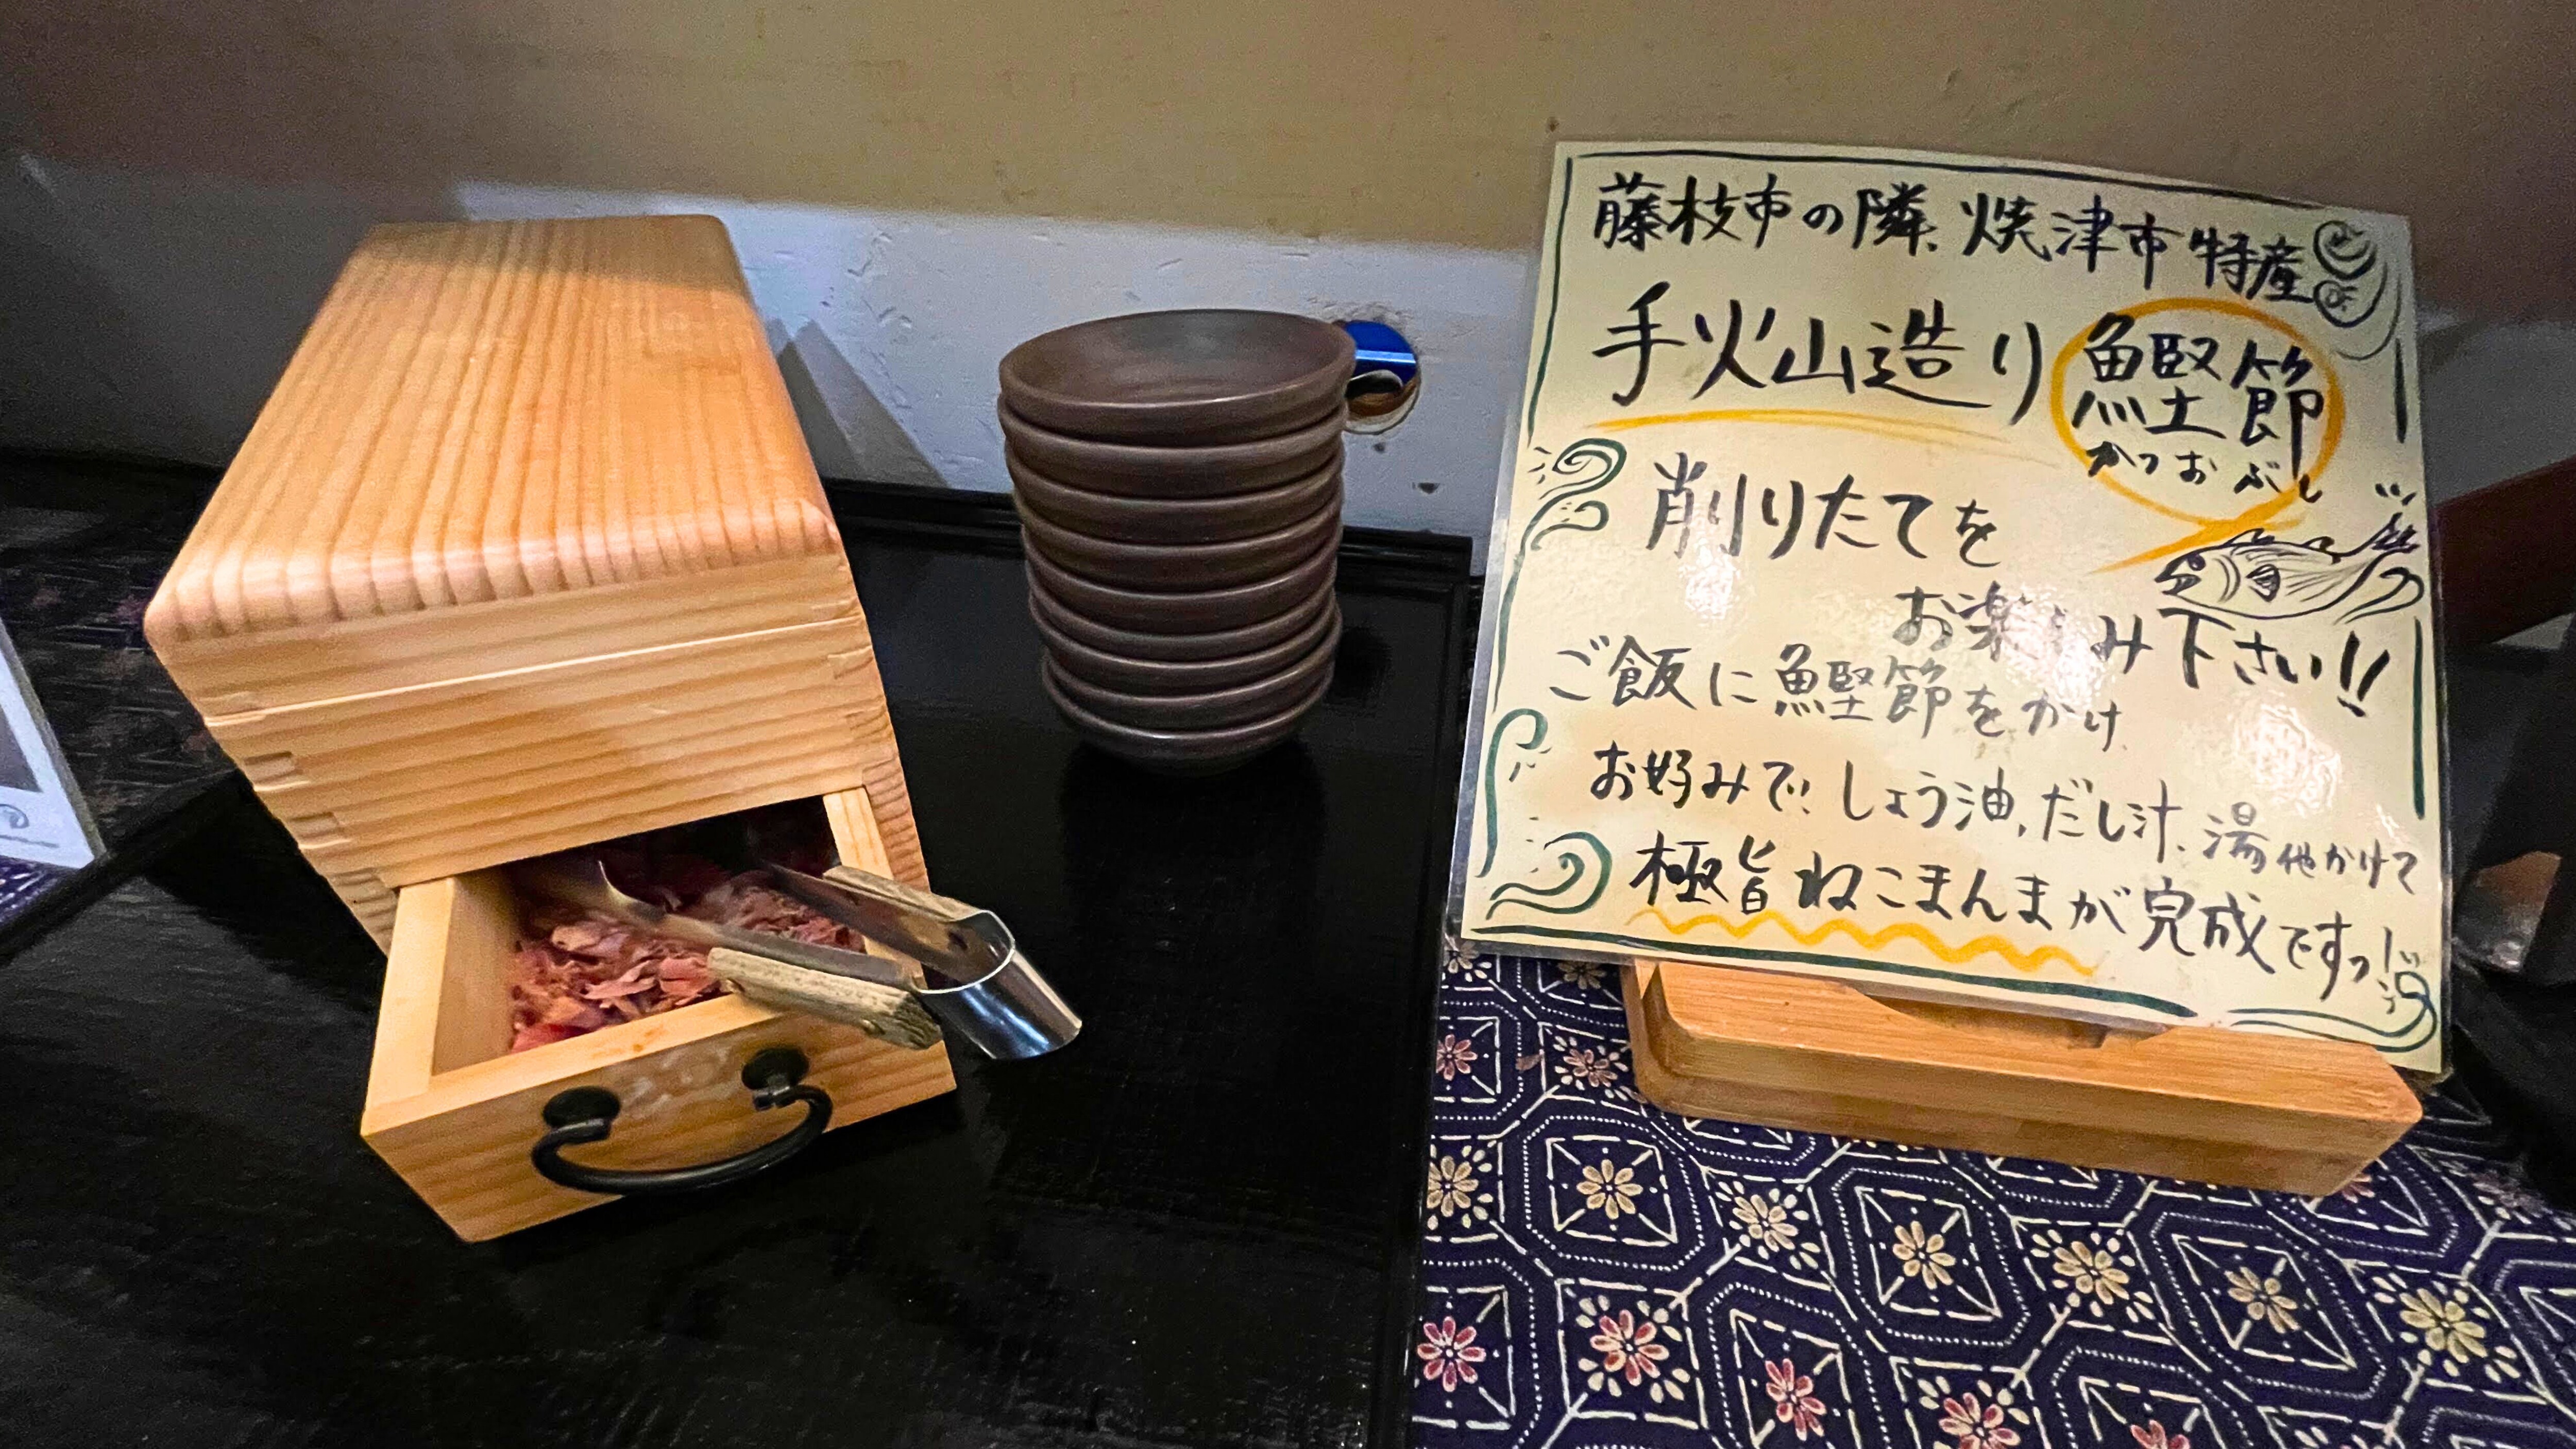 藤枝市の隣、焼津市特産
手火山造り
鰹節
かつおぶし
削りたてを
お楽しみ下さい!!
ご飯に鰹節をかけ
お好みで!しょう油、だし汁、湯他かけて
極旨ねこまんまが完成ですっ!